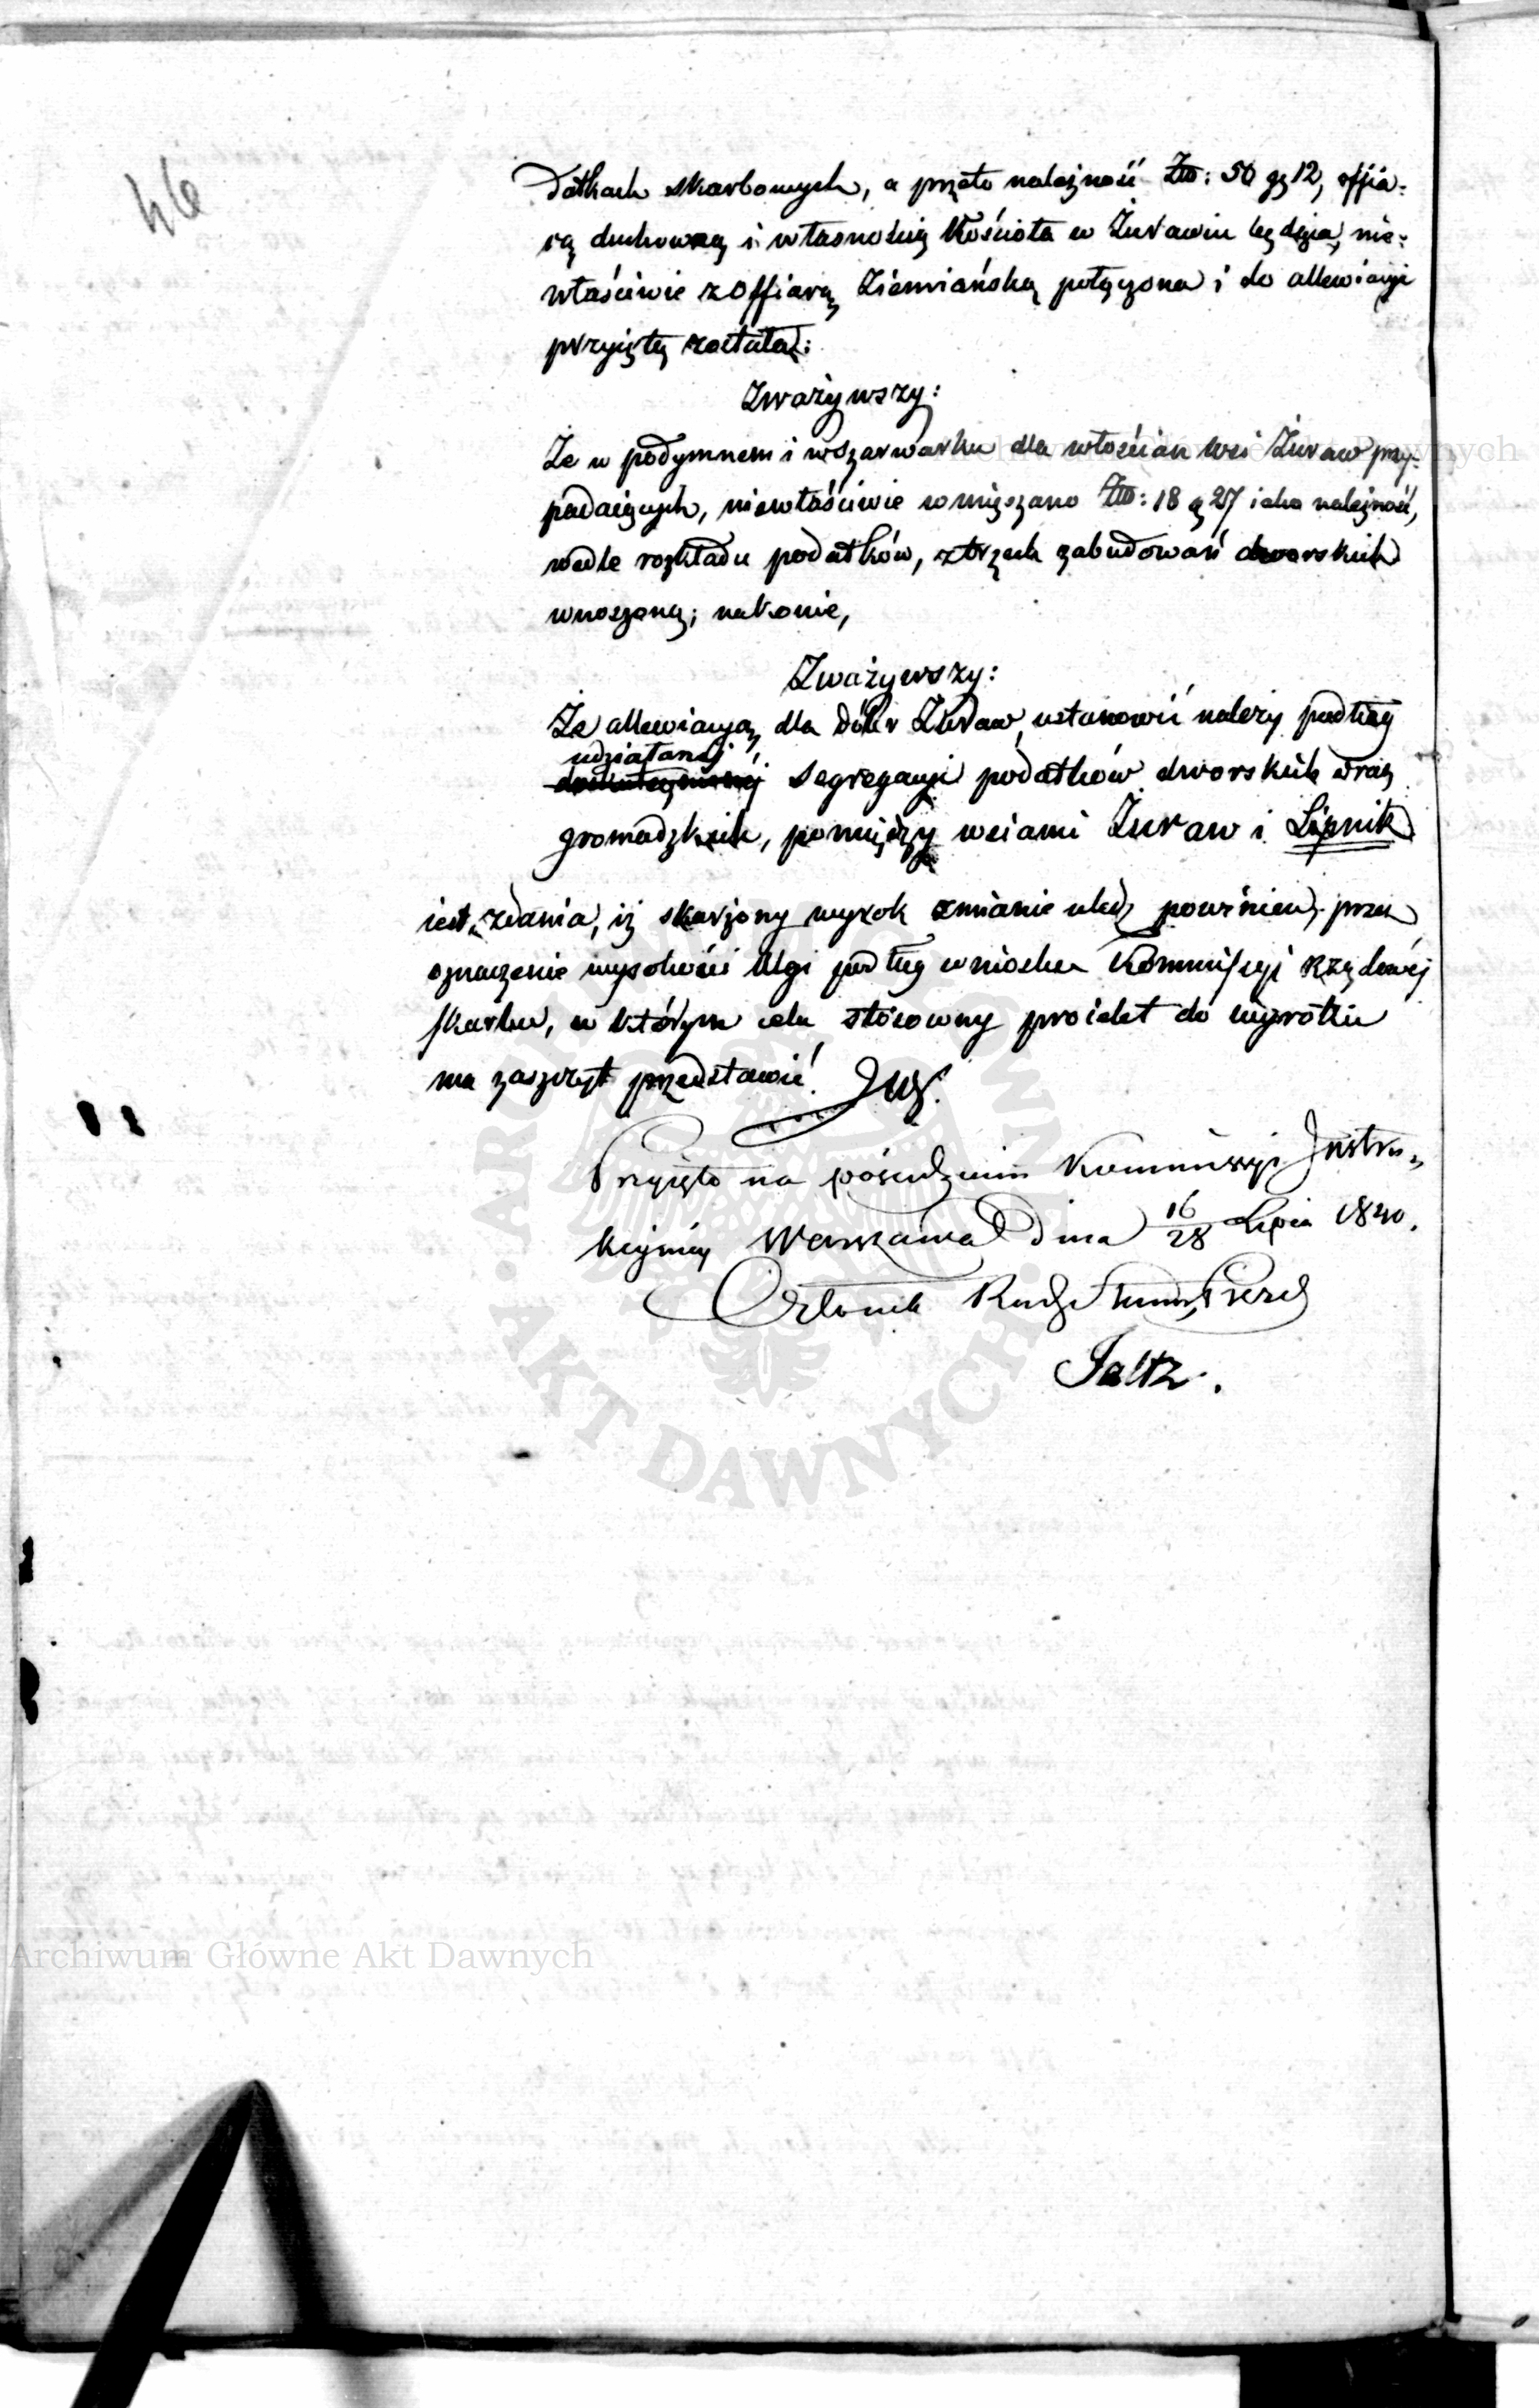 46
datkach skarbowych, a przeto należność Złto: 50 gr 12, offia-
rą duchowną i własnością Kościoła w Żurawiu będąca, nie-
właściwie z offiarą Ziemiańską połączona i do allewiacyi
przyiętą została;
Zważywszy:
Że w podymnem i w szarwarku dla włościan wsi Żuraw przy-
padaiących, niewłaściwie wmięszano Złto: 18 g 27 iako należność,
wedle rozkładu podatków, z trzech zabudowań dworskich
wnoszoną; nakonie,
Zważywszy:
Że allewiacyą dla dóbr Żuraw, ustanowić należy podług
udziałanéj
segregacyi podatków dworskich wraz
gromadzkich, pomiędzy wsiami Żuraw i Lipnik
iest zdania, iż skarżony wyrok zmianie uledz powinien, przez
oznaczenie wysokości Ulgi podług wniosku Kommissyi Rządowéj
Skarbu, w którym celu stósowny proiekt do wyroku
ma zaszczyt przedstawić.
Przyięto na posiedzeniu Kommissyi Instru-
kcyinéj Warszawa dnia 16/28 Lipca 1840.
Członek Rady Stanu, Prezes
Faltz.
Archiwum Główne Akt Dawnych
Archiwum Główne Akt Dawnych
ARCHIWUM GŁÓWNE · AKT DAWNYCH ·